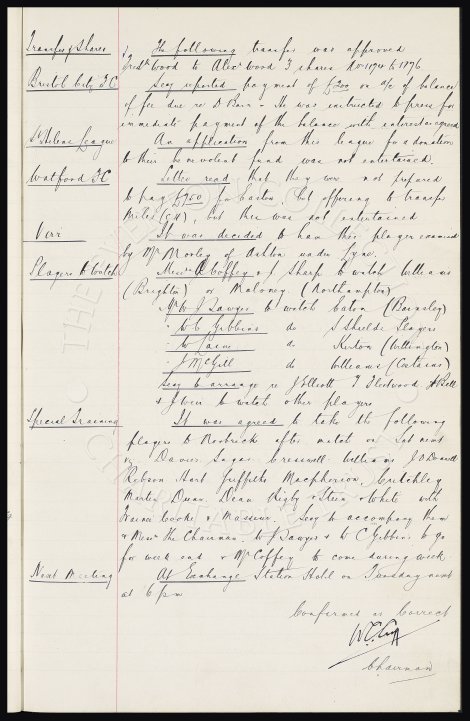 Transfer of Shares The following transfer was approved
Fredk Wood to Alex Wood 3 shares Nos 1174 to 1176
Bristol City F.C. Secy reported payment of £300 on a/c of balance
of fee due re D Bain - He was instructed to press for
immediate payment of the balance with interest as agreed
St Helens League An application from this league for a donation
to their benevolent fund was not entertained.
Watford F.C. Letter read that they were not prepared
to pay £750 for Easton, but offering to transfer
but this was not entertained
It was decided to have this player examined
by Mr Morley of Ashton under Lyne.
Players to Watch Messrs A Coffey & J Sharp to watch Williams
(Brighton) or Maloney (Northampton)
Mr W J Sawyer to watch Eaton (Barnsley)
" W C Gibbins do S Shields Players
" W Cain do Kirton (Withington)
" J McGill do Williams (Certains)
Secy to arrange re J Elliott T Fleetwood
& J Weir to watch other players
Special Training It was agreed to take the following
players to after match on Sat next
viz Davies Sagar Cresswell Williams J O'Donnell
Robson Hart Griffiths Macpherson, Critchley
Martin Dunn, Dean Rigby & Stein & White with
Trainer Cooke & Masseur. Secy to accompany them
& Messrs The Chairman. W J Sawyer & W C Gibbins to go
for week end & Mr Coffey to come during week.
Next Meeting At Exchange Station Hotel on Tuesday next
at 6 pm
Confirmed as Correct
Chairman